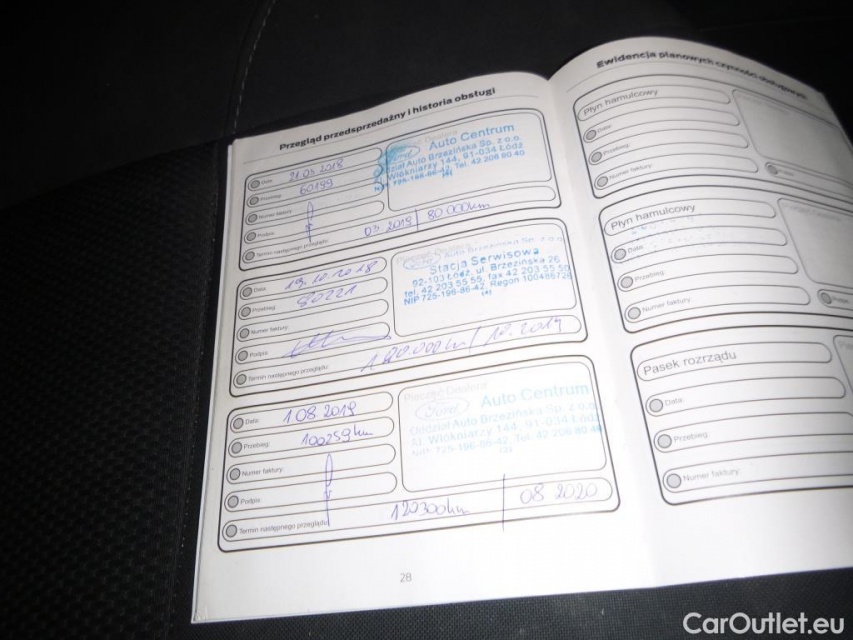 Przegląd przedsprzedażny i historia obsługi
Data: 21.03.2018
Przebieg: 60199
Numer faktury:
Podpis:
Termin następnego przeglądu: 03.2019 / 80 000km
Pieczęć Dealera
Ford Auto Centrum
Oddział Auto Brzezińska Sp. z o.o.
Włókniarzy 144, 91-034 Łódź
725-196-86-42, Tel. 42 206 80 40
Data: 19.10.2018
Przebieg: 80221
Numer faktury:
Podpis:
Termin następnego przeglądu: 10.2019
Ford Auto Brzezińska Sp. z o.o.
Stacja Serwisowa
92-103 Łódź, ul. Brzezińska 26
tel. 42 203 55 55, fax 42 203 55 50
NIP 725-196-86-42, Regon
Data: 1 08 2019
Przebieg: 100259km
Numer faktury:
Podpis:
Termin następnego przeglądu: 120300km / 08 2020
Pieczęć Dealera
Ford Auto Centrum
Oddział Auto Brzezińska Sp. z o.o.
Al. Włókniarzy 144, 91-034 Łódź
NIP 725-196-86-42, Tel. 42 206 80 40
28
Ewidencja planowych czynności obsługowych
Płyn hamulcowy
Data:
Przebieg:
Numer faktury:
Płyn hamulcowy
Data:
Przebieg:
Numer faktury:
Pasek rozrządu
Data:
Przebieg:
Numer faktury:
CarOutlet.eu